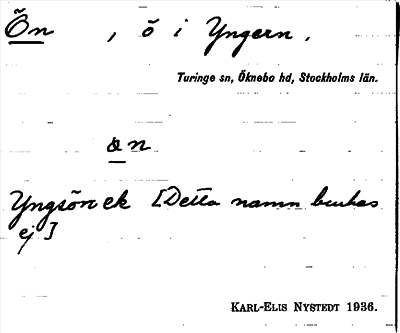 Ön, ö i Yngern.
Turinge sn, Öknebo hd, Stockholms län.
ön
Yngsön ek [Detta namn brukas
ej]
KARL-ELIS NYSTEDT 1936.